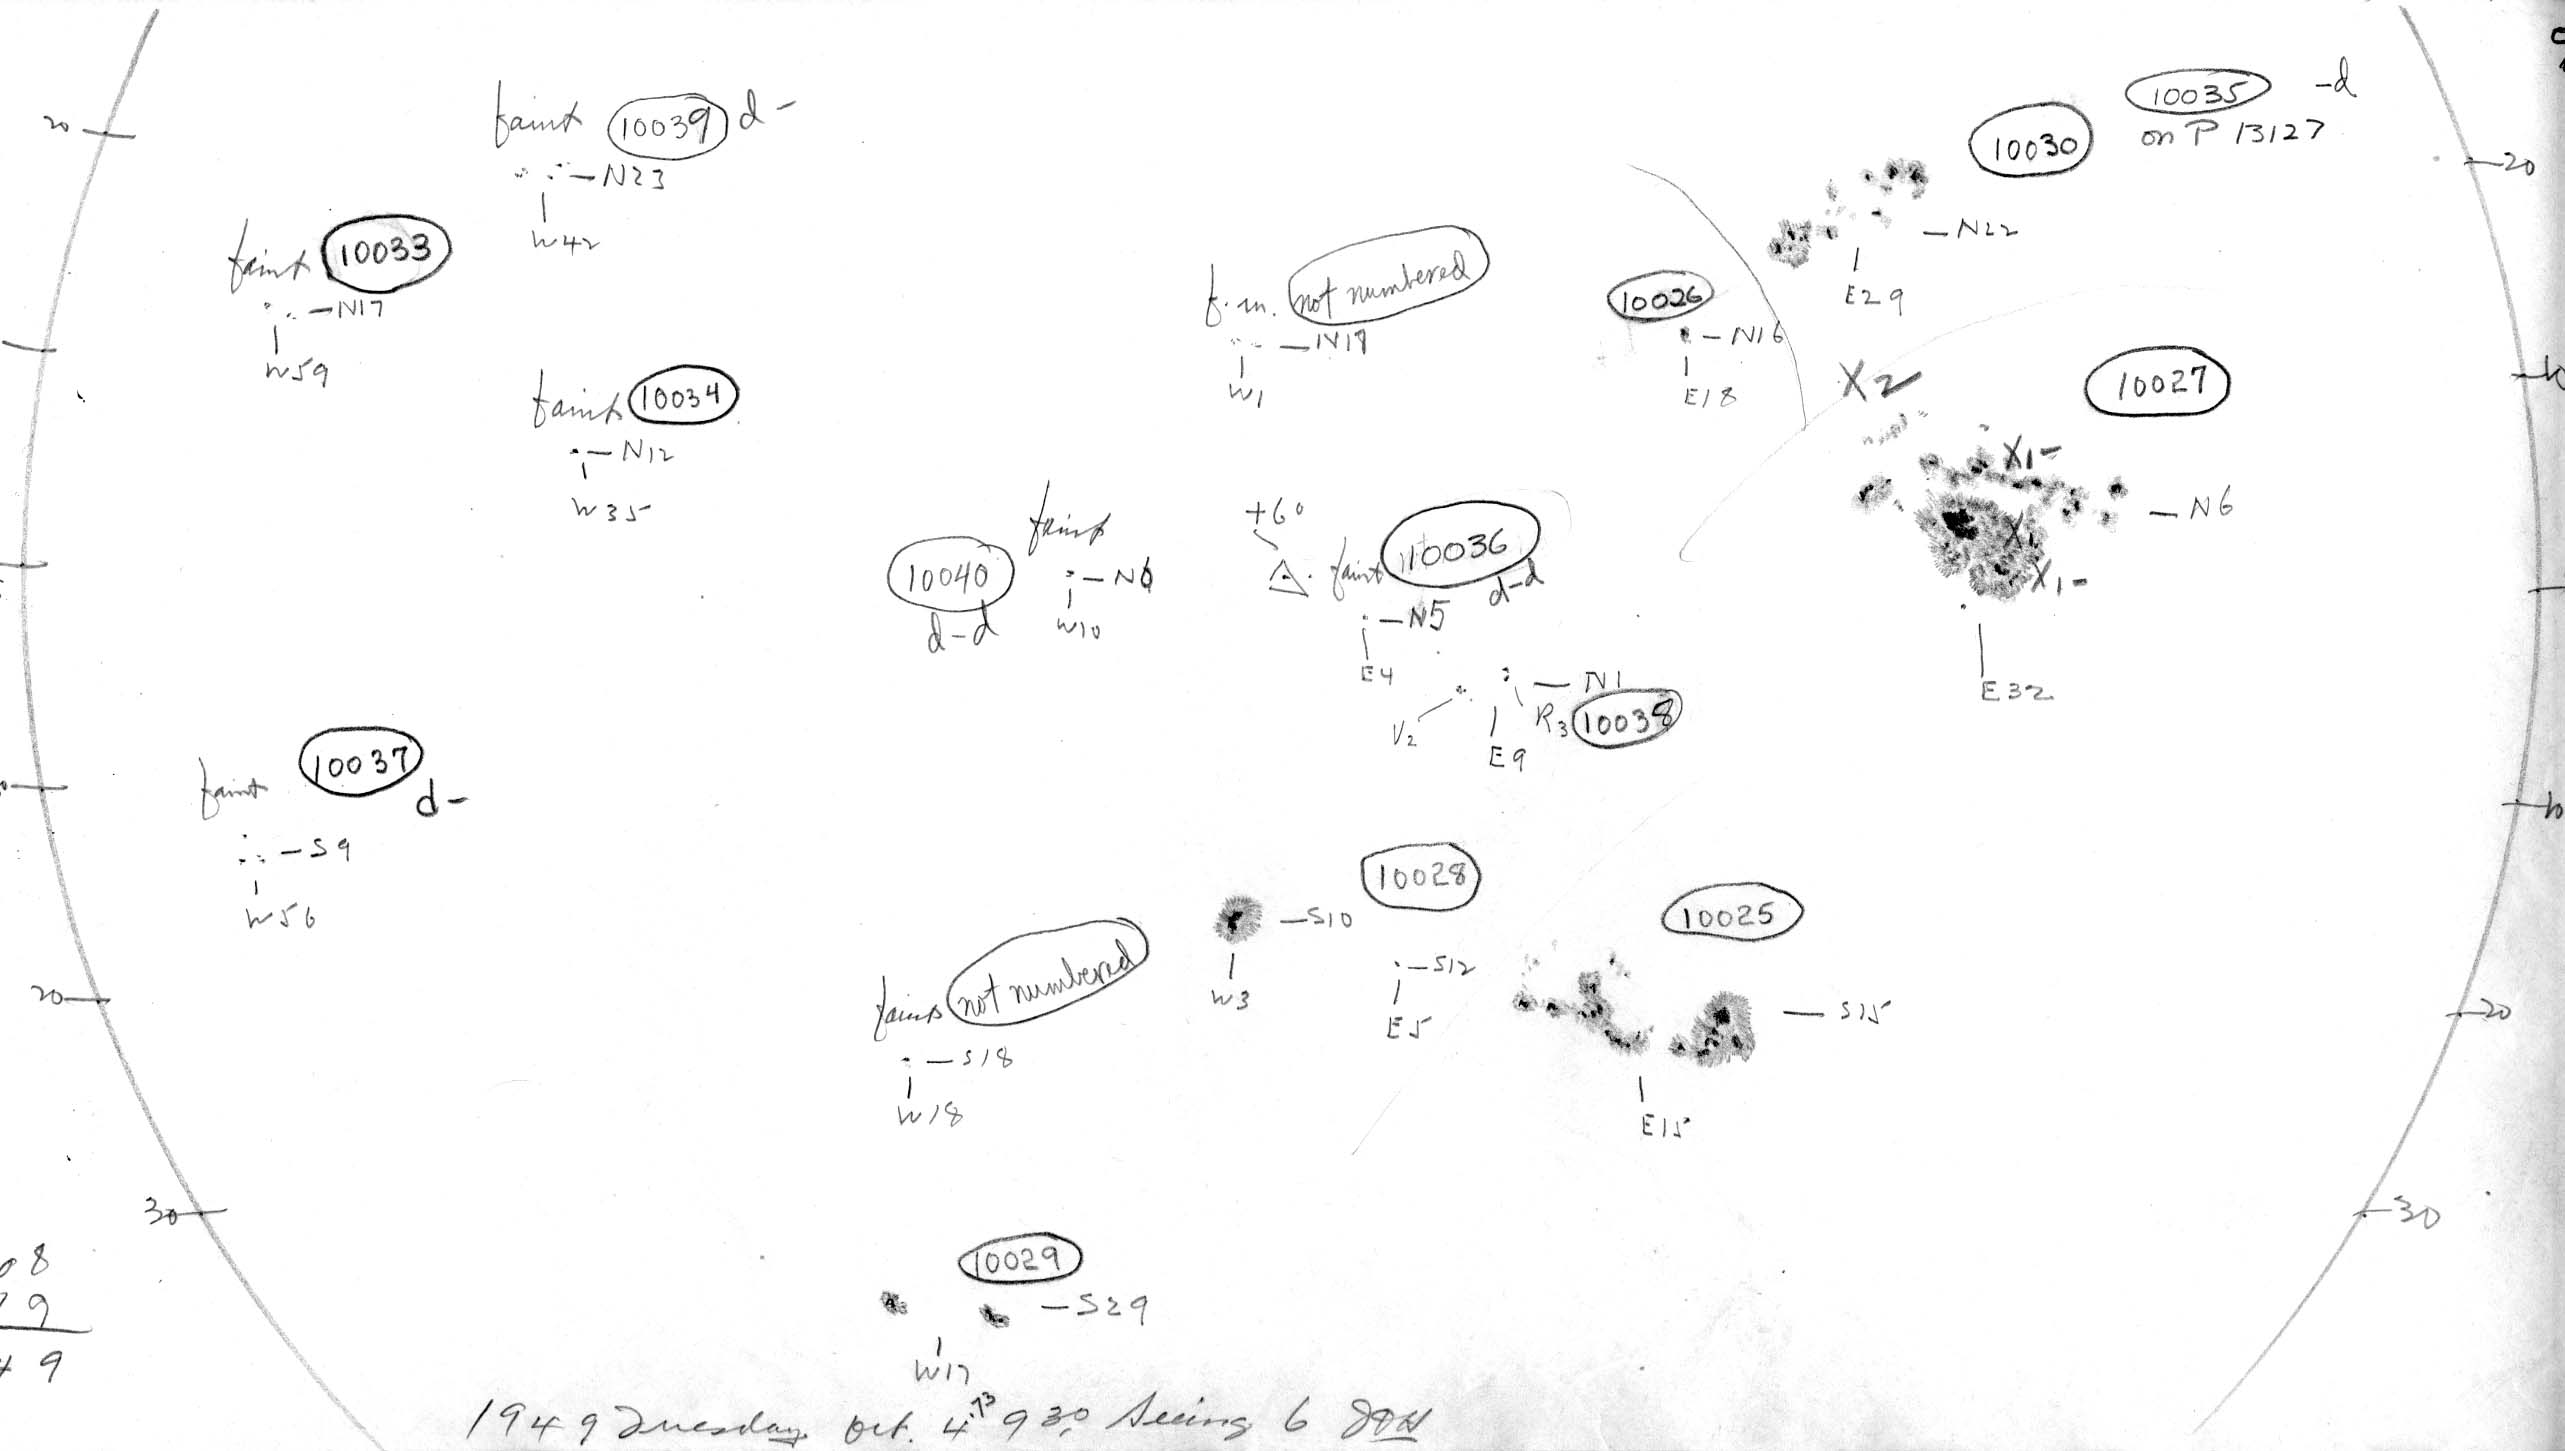 20
faint 10039 d-
-N23
W42
10035 -d
on P 13127
10030
-N22
E29
-20
faint 10033
-N17
W59
f.m. not numbered
W1
10026
-N16
E18
X2
10027
X1-
X1
X1-
-N6
E32
faint 10034
-N12
W35
faint
10040
d-d
W10
+6°
faint 10036
d-d
-N5
E4
-N1
V2
R3 10038
E9
faint 10037
d-
-S9
W56
-10
10028
-S10
W3
-S12
E5
10025
-S15
E15
20
-20
faint not numbered
-S18
W18
30
-30
10029
-S29
W17
08
9
49
1949 Tuesday Oct. 4.73 9 30 Seeing 6